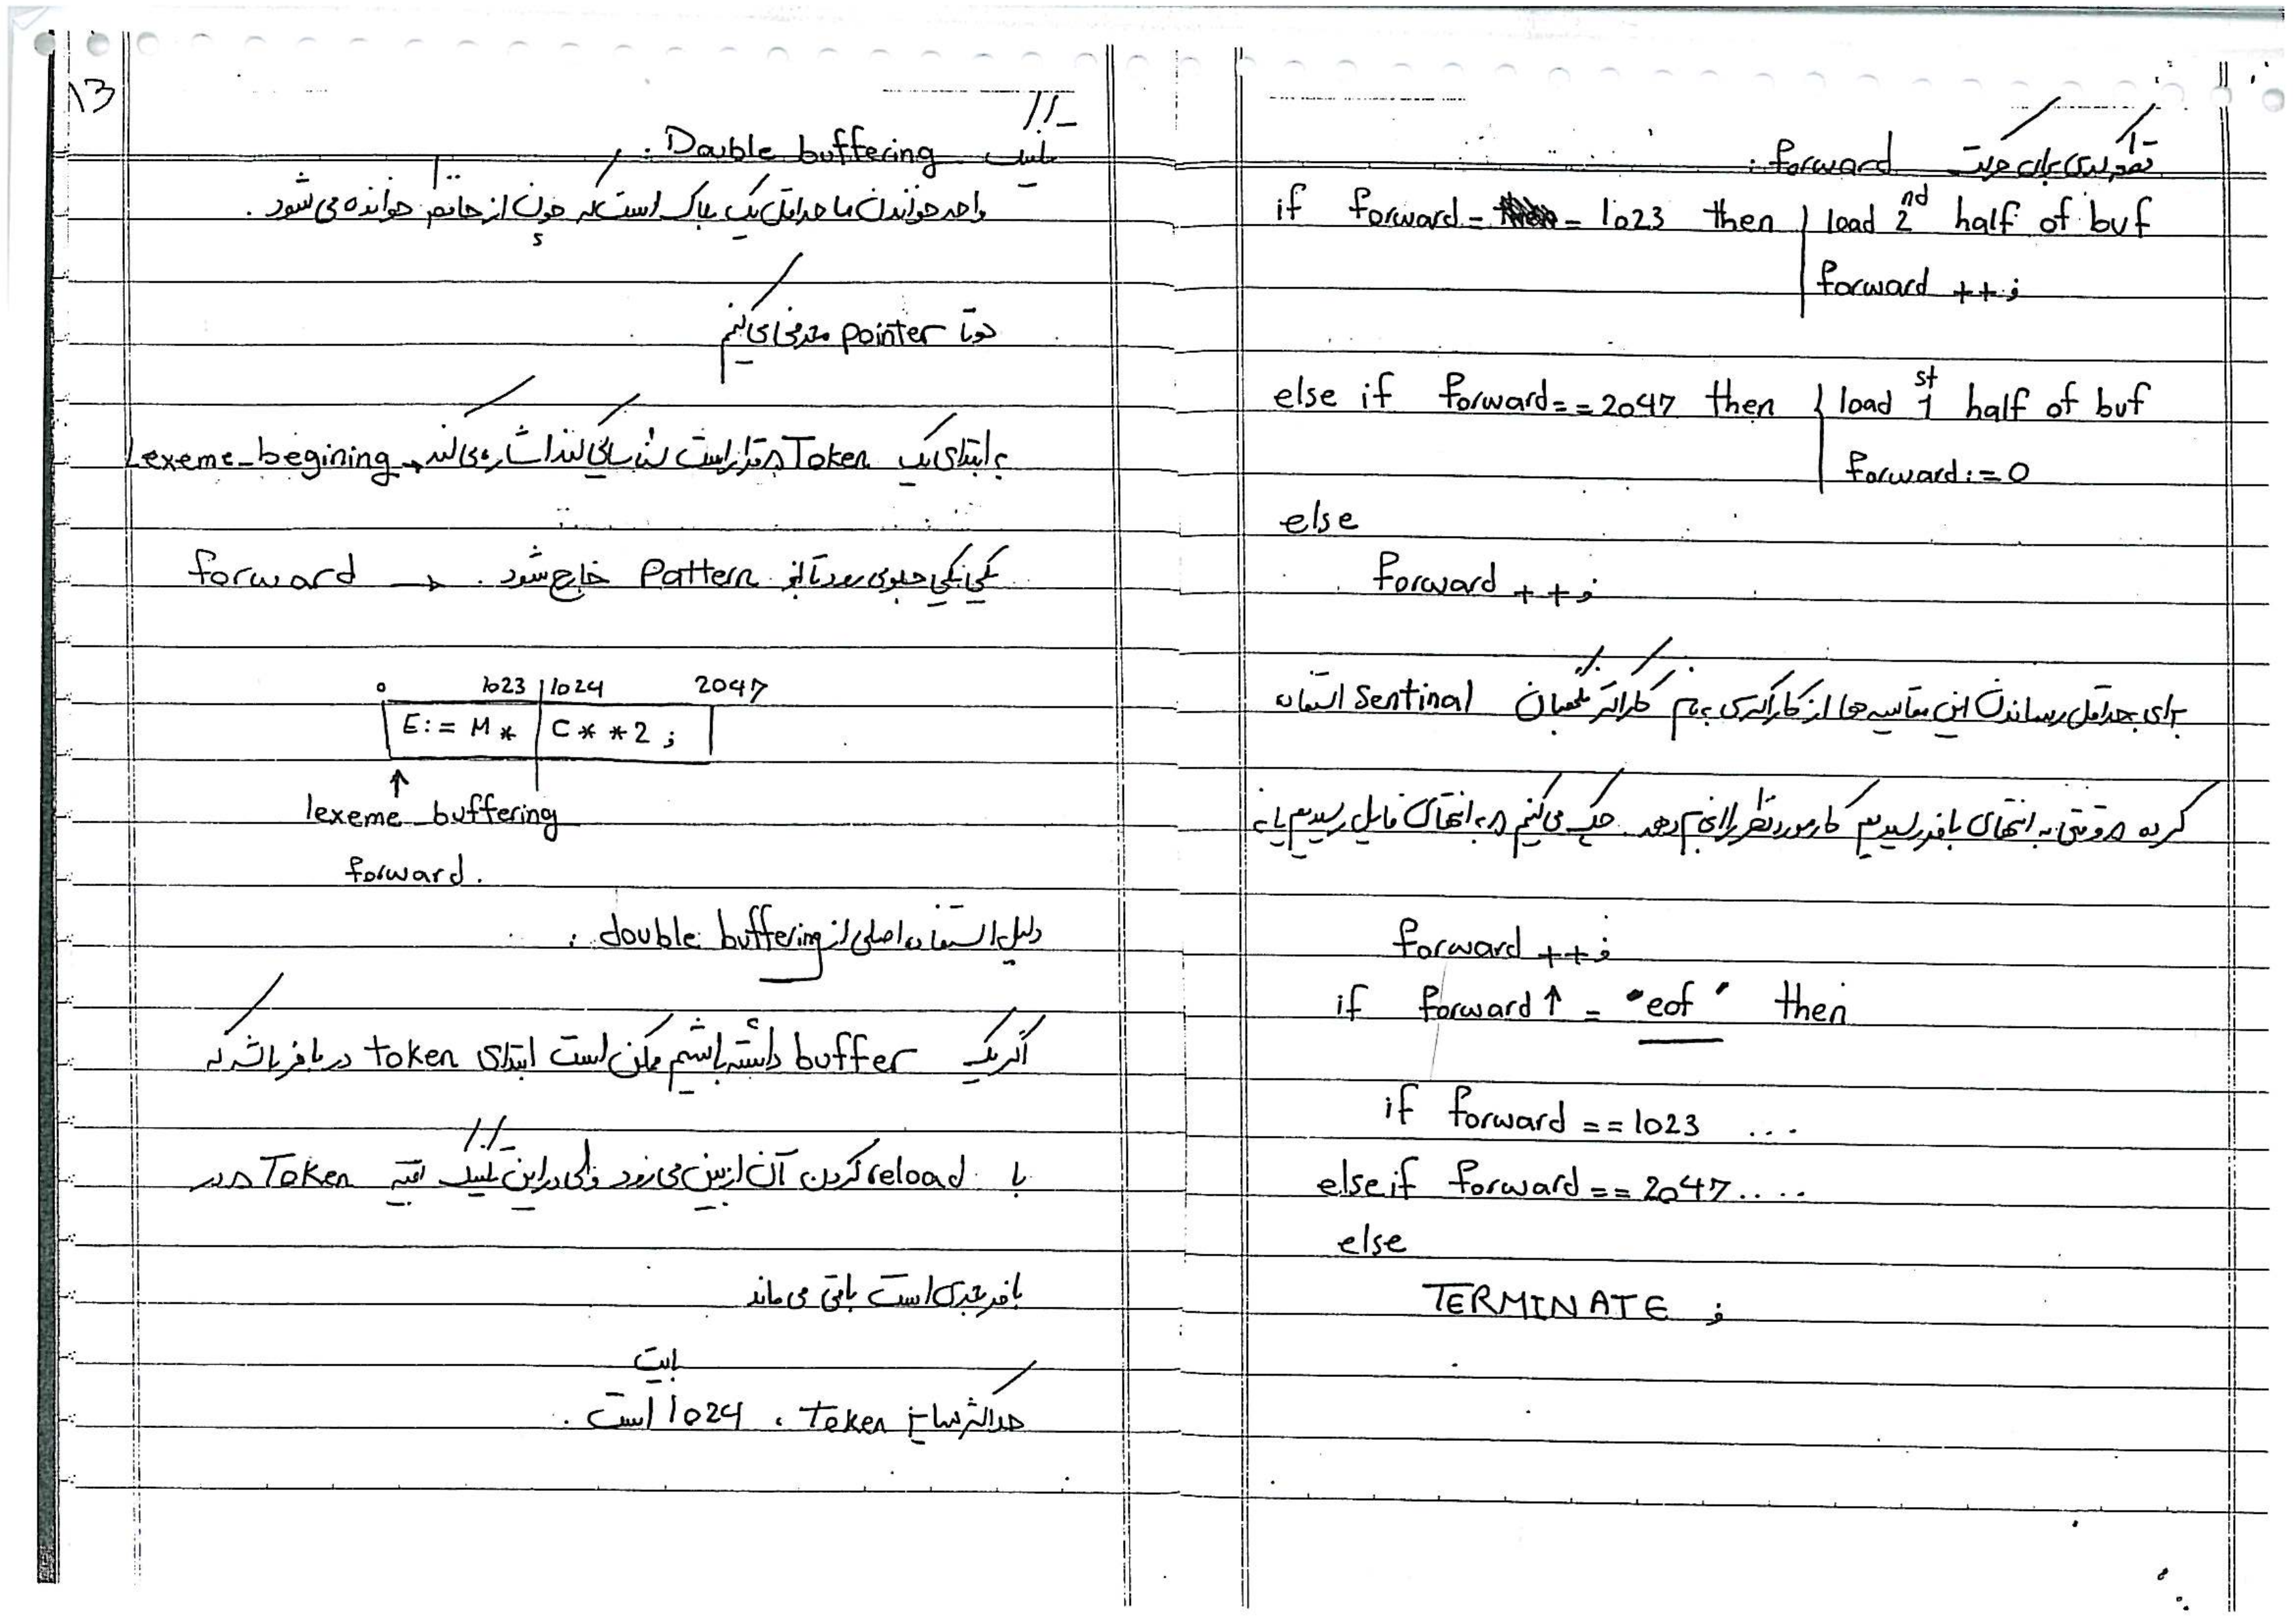 13
تکنیک Double buffering :
واحد خواندن ما حداقل یک بلاک است که چون از حافظه خوانده می شود .
دوتا pointer معرفی می کنیم
به ابتدای یک Token که قرار است شناسایی کند اشاره می کند → Lexeme_begining
یکی یکی جلو می رود تا از Pattern خارج شود . → forward
0 1023 | 1024 2047
E:= M * | C * * 2 ;
↑
lexeme_buffering
forward.
دلیل استفاده اصلی از double buffering :
اگر یک buffer داشته باشیم ممکن است ابتدای token در بافر باشد که
با reload کردن آن از بین می رود ولی در این تکنیک بقیه Token که در
بافر بعدی است باقی می ماند
حداکثر سایز Token ، 1024 بایت است .
برای حرکت forward :
if forward = = 1023 then | load 2nd half of buf
forward ++;
else if forward = = 2047 then | load 1st half of buf
forward := 0
else
forward ++;
برای به حداقل رساندن این مقایسه ها از کاراکتری به نام کاراکتر نگهبان Sentinal استفاده
کرده که وقتی به انتهای بافر رسیدیم کار مورد نظر را انجام دهد . چک می کنیم که به انتهای فایل رسیدیم یا نه
forward ++;
if forward ↑ = "eof" then
if forward == 1023 ...
else if forward == 2047 ....
else
TERMINATE ;